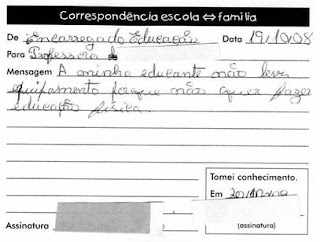 Correspondência escola ⇔ família
De Encarregado Educação Data 19/10/08
Para Professora
Mensagem A minha educante não leva
equipamento porque não quer fazer
educação física.
Tomei conhecimento.
Em
Assinatura
(assinatura)